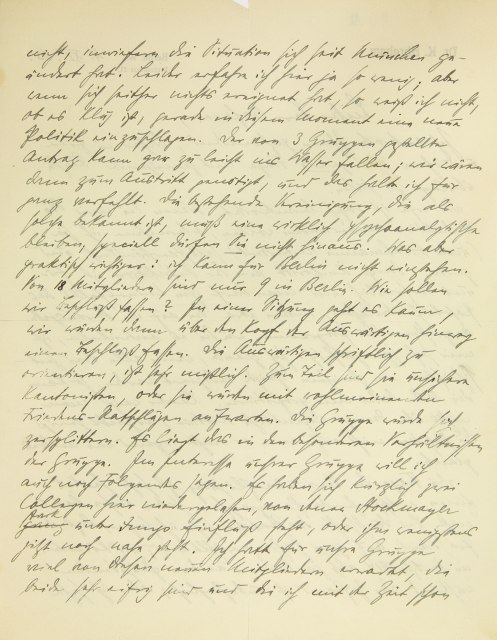 nicht, inwiefern die Situation sich seit München ge-
ändert hat. Leider erfahre ich hier ja so wenig, aber
wenn sich seither nichts ereignet hat, so weiß ich nicht,
ob es klug ist, gerade in diesem Moment eine neue
Politik einzuschlagen. Der von 3 Gruppen gestellte
Antrag kann gar zu leicht ins Wasser fallen, wir wären
dann zum Austritt genötigt, und das halte ich für
ganz verfehlt. Die bestehende Vereinigung, die als
solche bekannt ist, muß eine wirklich psychoanalytische
bleiben, speciell dürfen Sie nicht hinaus. Was aber
praktisch wichtiger: ich kann für Berlin nicht einstehen.
Von 18 Mitgliedern sind nur 9 in Berlin. Wie sollen
wir Beschluß fassen? In einer Sitzung geht es kaum,
wir würden dann über den Kopf der Auswärtigen hinweg
einen Beschluß fassen. Die Auswärtigen schriftlich zu
orientieren, ist sehr mißlich. Zum Teil sind sie unsichere
Kantonisten, oder sie würden mit wohlmeinenden
Friedens-Ratschlägen aufwarten. Die Gruppe würde sich
zersplittern. Es liegt das in den besonderen Verhältnissen
der Gruppe. Im Interesse unsrer Gruppe will ich
auch noch Folgendes sagen. Es haben sich kürzlich zwei
Collegen hier niedergelassen, von denen Stockmayer
stark
unter Jungs Einfluß steht, oder ihm wenigstens
jetzt noch nahe steht. Ich hatte für unsre Gruppe
viel von diesen neuen Mitgliedern erwartet, die
beide sehr eifrig sind und die ich mit der Zeit schon